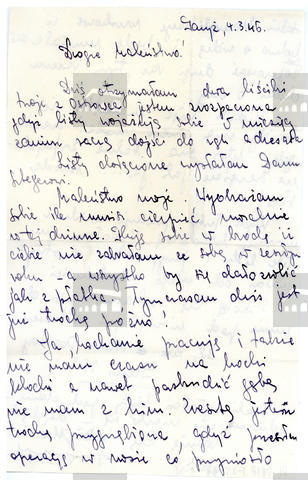 Paryż, 4.3.46.
Drogie Maleństwo!
Dziś otrzymałam dwa liściki
twoje z Ostrowca jestem zrozpaczona
gdyż listy wojażują sobie 4 miesiące
zanim raczą dojść do rąk adresata
Listy dołączone wysłałam Panu
Maleństwo moje. Wyobrażam
sobie ile musisz cierpieć moralnie
w tej dziurze. Pluję sobie w brodę że
ciebie nie zabrałam ze sobą w zeszłym
roku - a wszystko by się dało zrobić
jak z płatka. Tymczasem dziś jest
już trochę późno!
Ja, kochanie pracuję i także
nie mam czasu na kochi
kochi a nawet
nie mam z kim. Zresztą jestem
trochę przygnębiona, gdyż przeszłam
operację w nosie co przyniosło